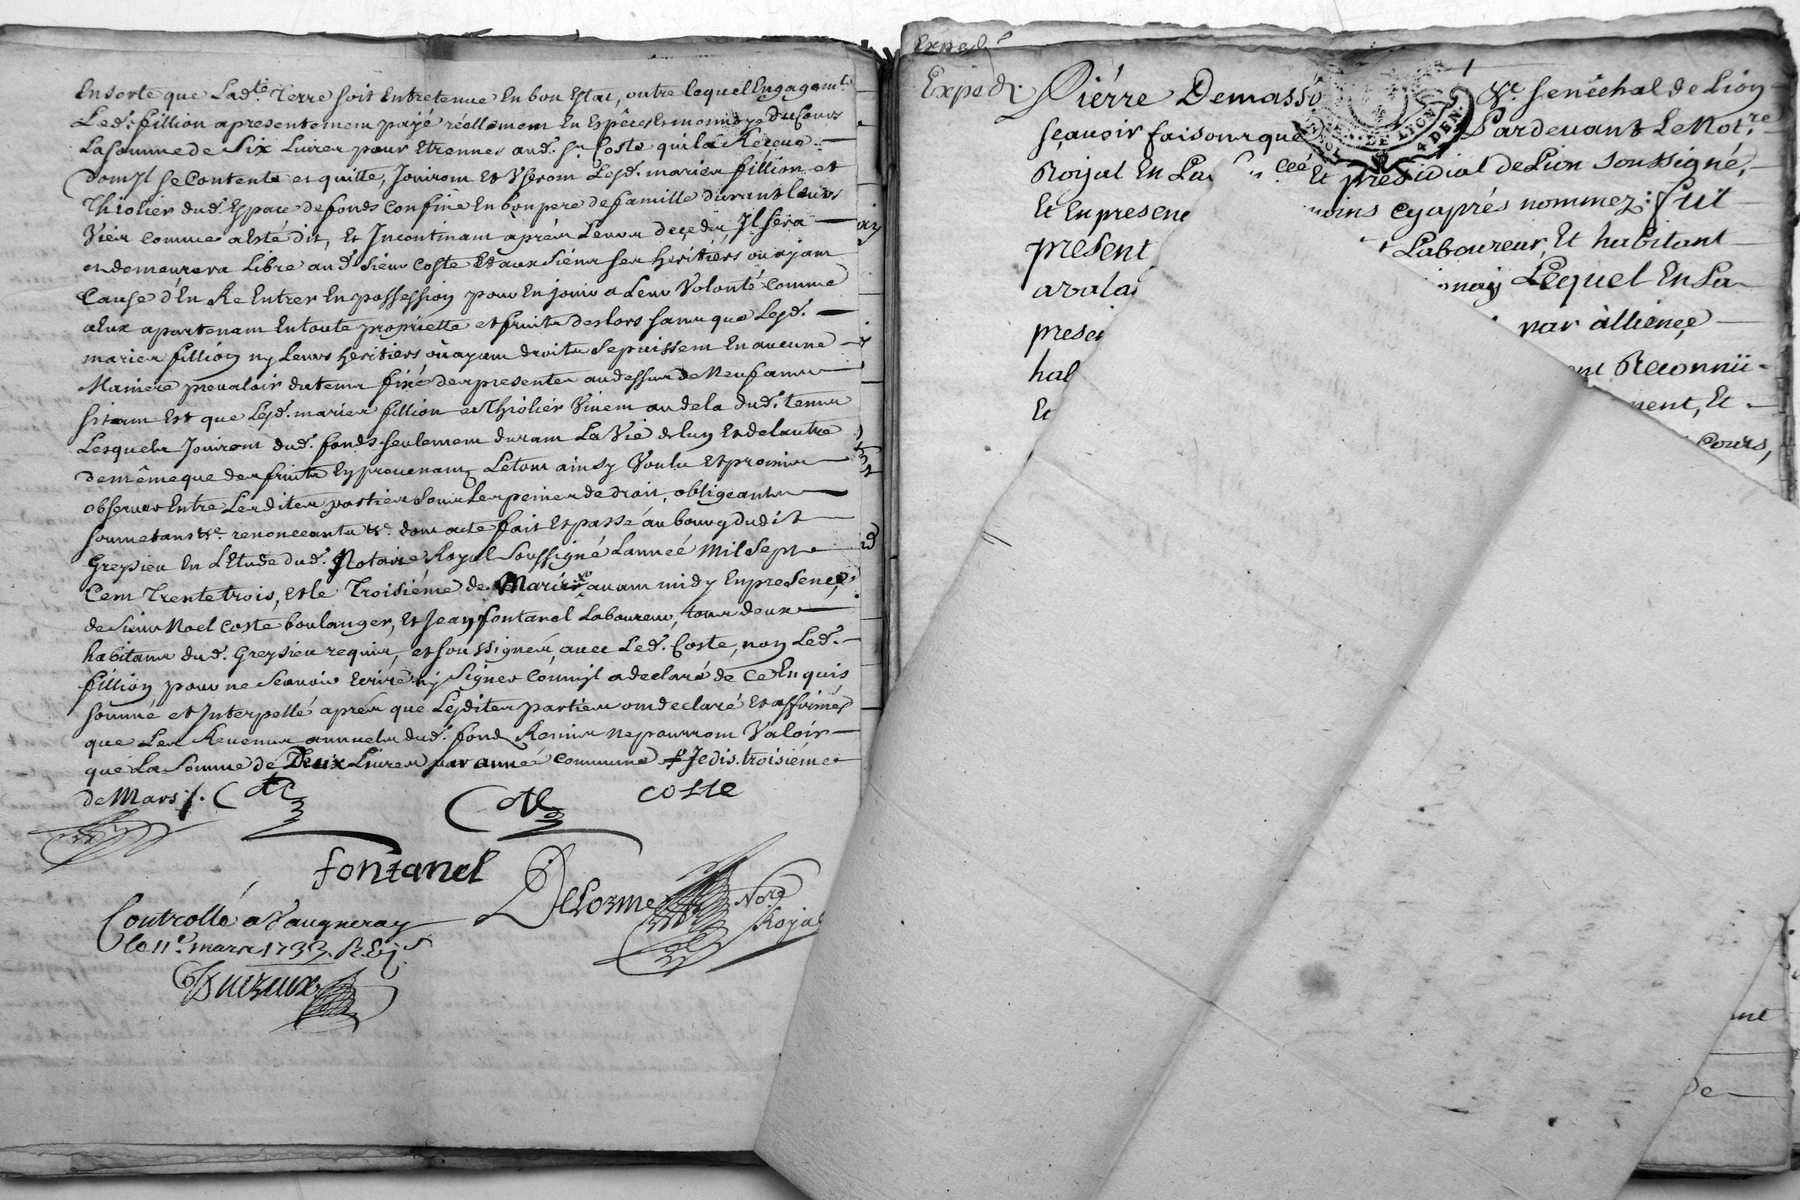 Ensorte que Lad.te Terre soit Entretenue En bon Etat, outre lequel Engagem.t
Led. fillion apresentement payé réellement En Espèces et monnoye du Cours
La somme de Six Livres pour Etrennes aud. Sr. Coste qui la Reçeue
dont Il se Contente et quitte, Jouiront Et Useront Lesd. mariés fillion et
Thiolier dud. Espace de fonds confiné En bon pere de famille durant leurs
Vies comme a esté dit, Et Incontinant aprés Leurs deçeds, Il sera
et demeurera Libre aud. Sieur Coste Et aux Siens ses héritiérs ou ayant
Cause d'En Re Entrer En possession pour En jouir a Leur Volonté comme
a Eux apartenant En toute proprietté et fruits des lors sans que Lesd.
mariés fillion ny Leurs héritiers où ayant droits se puissent En aucune
Maniere prevaloir du tems fixé des presentes au dessus de Neuf années
si tant Est que Lesd. mariés fillion et Thiolier Vivent au dela dud. tems
Lesquels Jouiront dud. fonds seulement durant La Vie de luy Et de l'autre
de même que des fruits En provenants Le tout ainsy Voulu Et promis
observer Entre Les dites parties sous Les peines de droit, obligeants
soumetans &c. renonceants &c. dont acte fait Et passé au bourg dudit
Greysieu En L'Etude dud. Notaire Royal Soussigné L'anneé Mil Sept
Cent Trente trois, et le Troisiéme de avant midy En presençe
de Sieur Noel Coste boulanger, Et Jean fontanel Laboureur, tous deux
habitans dud. Greysieu requis, et soussignés, avec Led. Coste, non Led.
fillion pour ne Scavoir Ecrire ny Signer Comm'Il a declaré de Ce Enquis
sommé et Interpellé aprés que Lesdites parties ont declaré Et affirmés
que Les Revenus annuels dud. fond Remis ne pourront Valoir
que La Somme de Deux Livres par année commune + Je dis troisiéme
de Mars /. Coste Coste coste
fontanel Delorme Not.re
Royal
Controllé a Vaugneray
le 11.e mars 1733. R.
Exped.
Exped. Piérre Demasso S.r Senéchal de Lion
sçavoir faisons que Pardevant Le Not.re
Royal En La cée Et présidial de Lion soussigné,
Et En presenc moins cy aprés nommez: fut
present Laboureur, Et habitant
avala Lequel En La
prese par alliençe
hal ent Reconnü
Et ment, Et
cours,